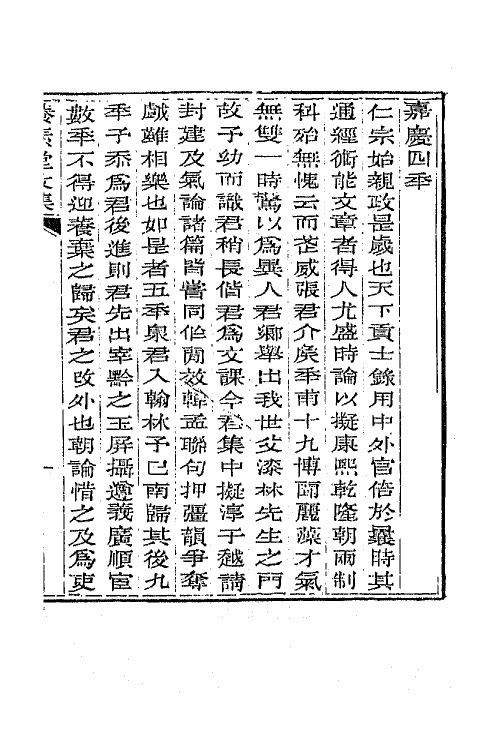 嘉慶四年
仁宗始親政是歲也天下貢士錄用中外官倍於曩時其
通經術能文章者得人尤盛時論以擬康熙乾隆朝兩制
科殆無愧云而武威張君介矦年甫十九博聞麗藻才氣
無雙一時驚以爲異人君鄉舉出我世父漆林先生之門
故予幼而識君稍長偕君爲文課今君集中擬淳于越請
封建及氣論諸篇皆嘗同作閒效韓孟聯句押彊韻爭奪
戲雖相樂也如是者五年泉君入翰林予已南歸其後九
年予忝爲君後進則君先出宰黔之玉屏攝遵義廣順官
數年不得迎養棄之歸矣君之改外也朝論惜之及爲吏
養素堂文集
一